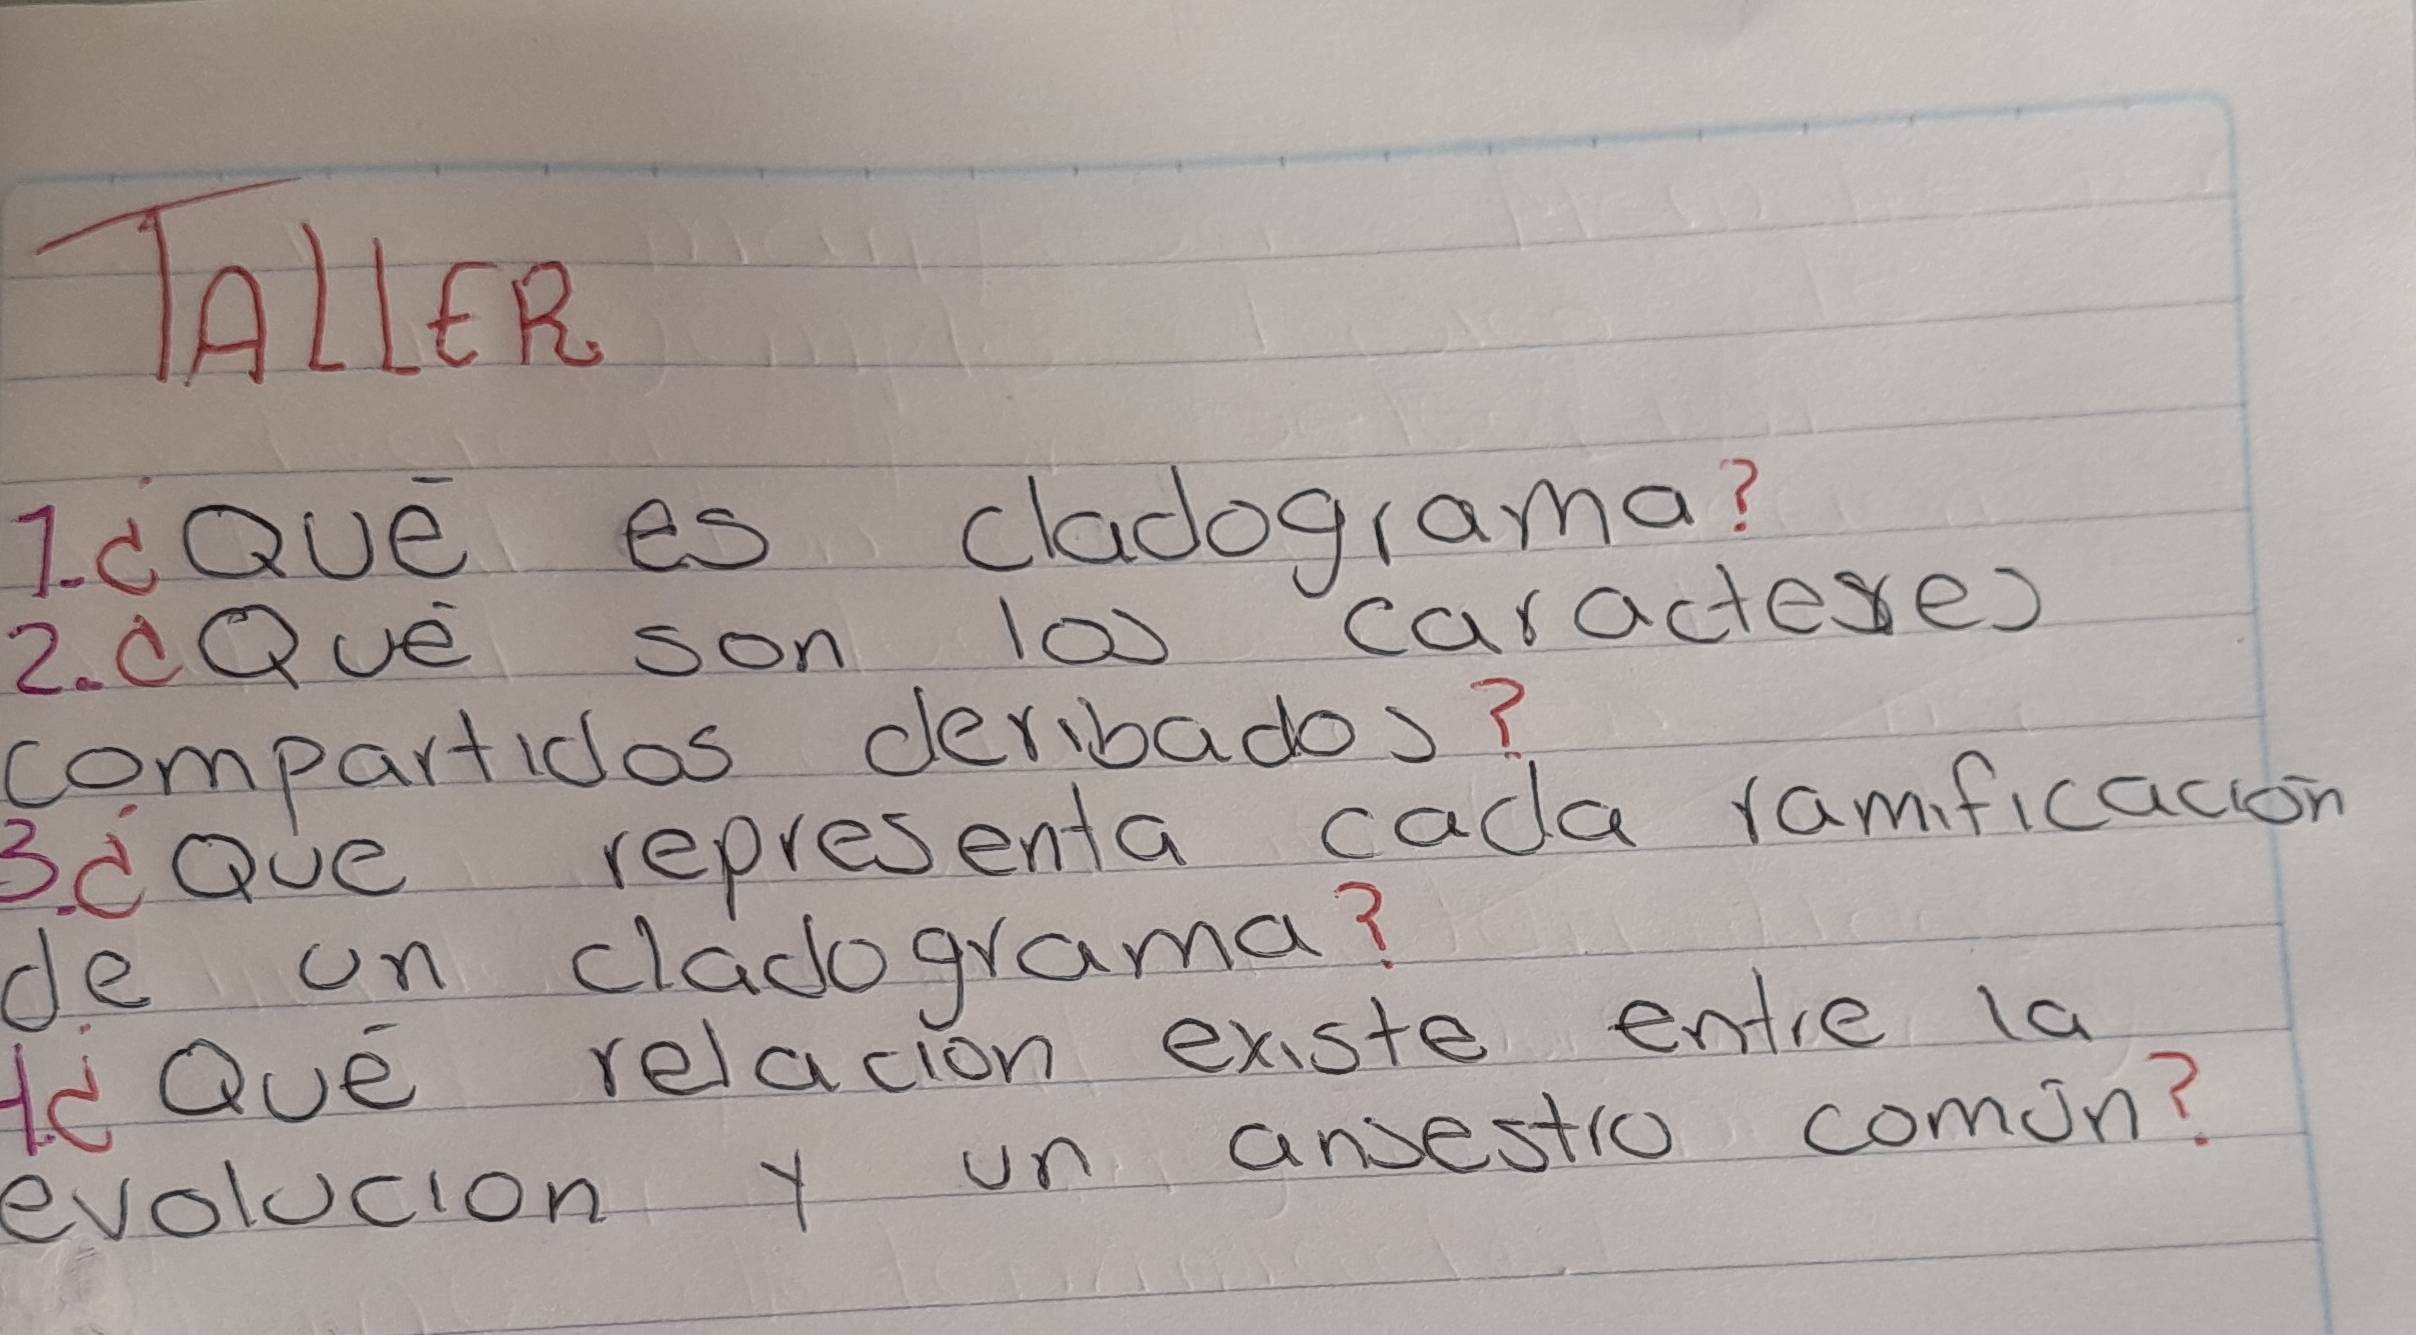 TALLER
1.¿Qué es cladograma?
2.¿Qué son los caracteres
compartidos deribados?
3.¿Que representa cada ramificación
de un cladograma?
4.¿Qué relación existe entre la
evolucion y un ansestro común?